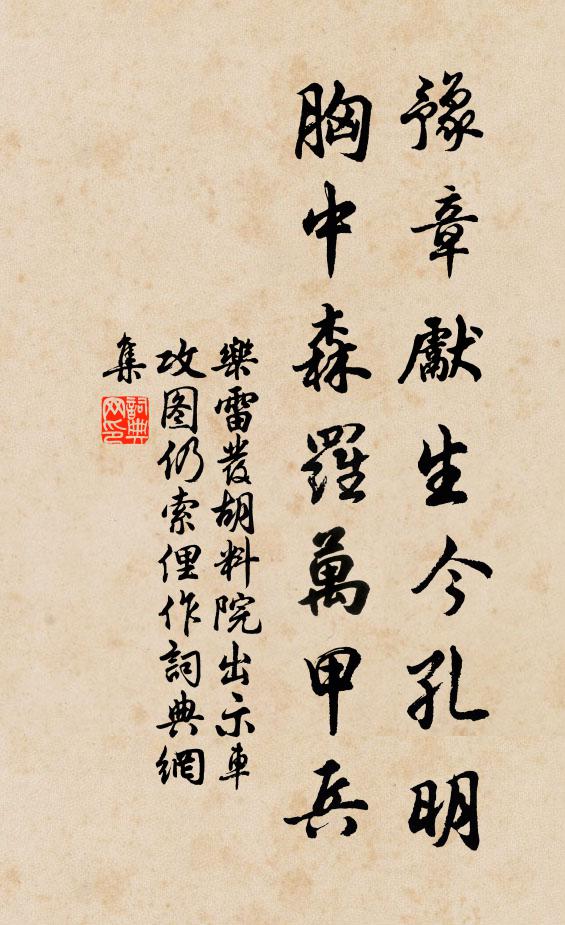 豫章獻生今孔明
胸中森羅萬甲兵
樂雷發胡料院出示車
攻图仍索俚作詞典網
集
詞典网印